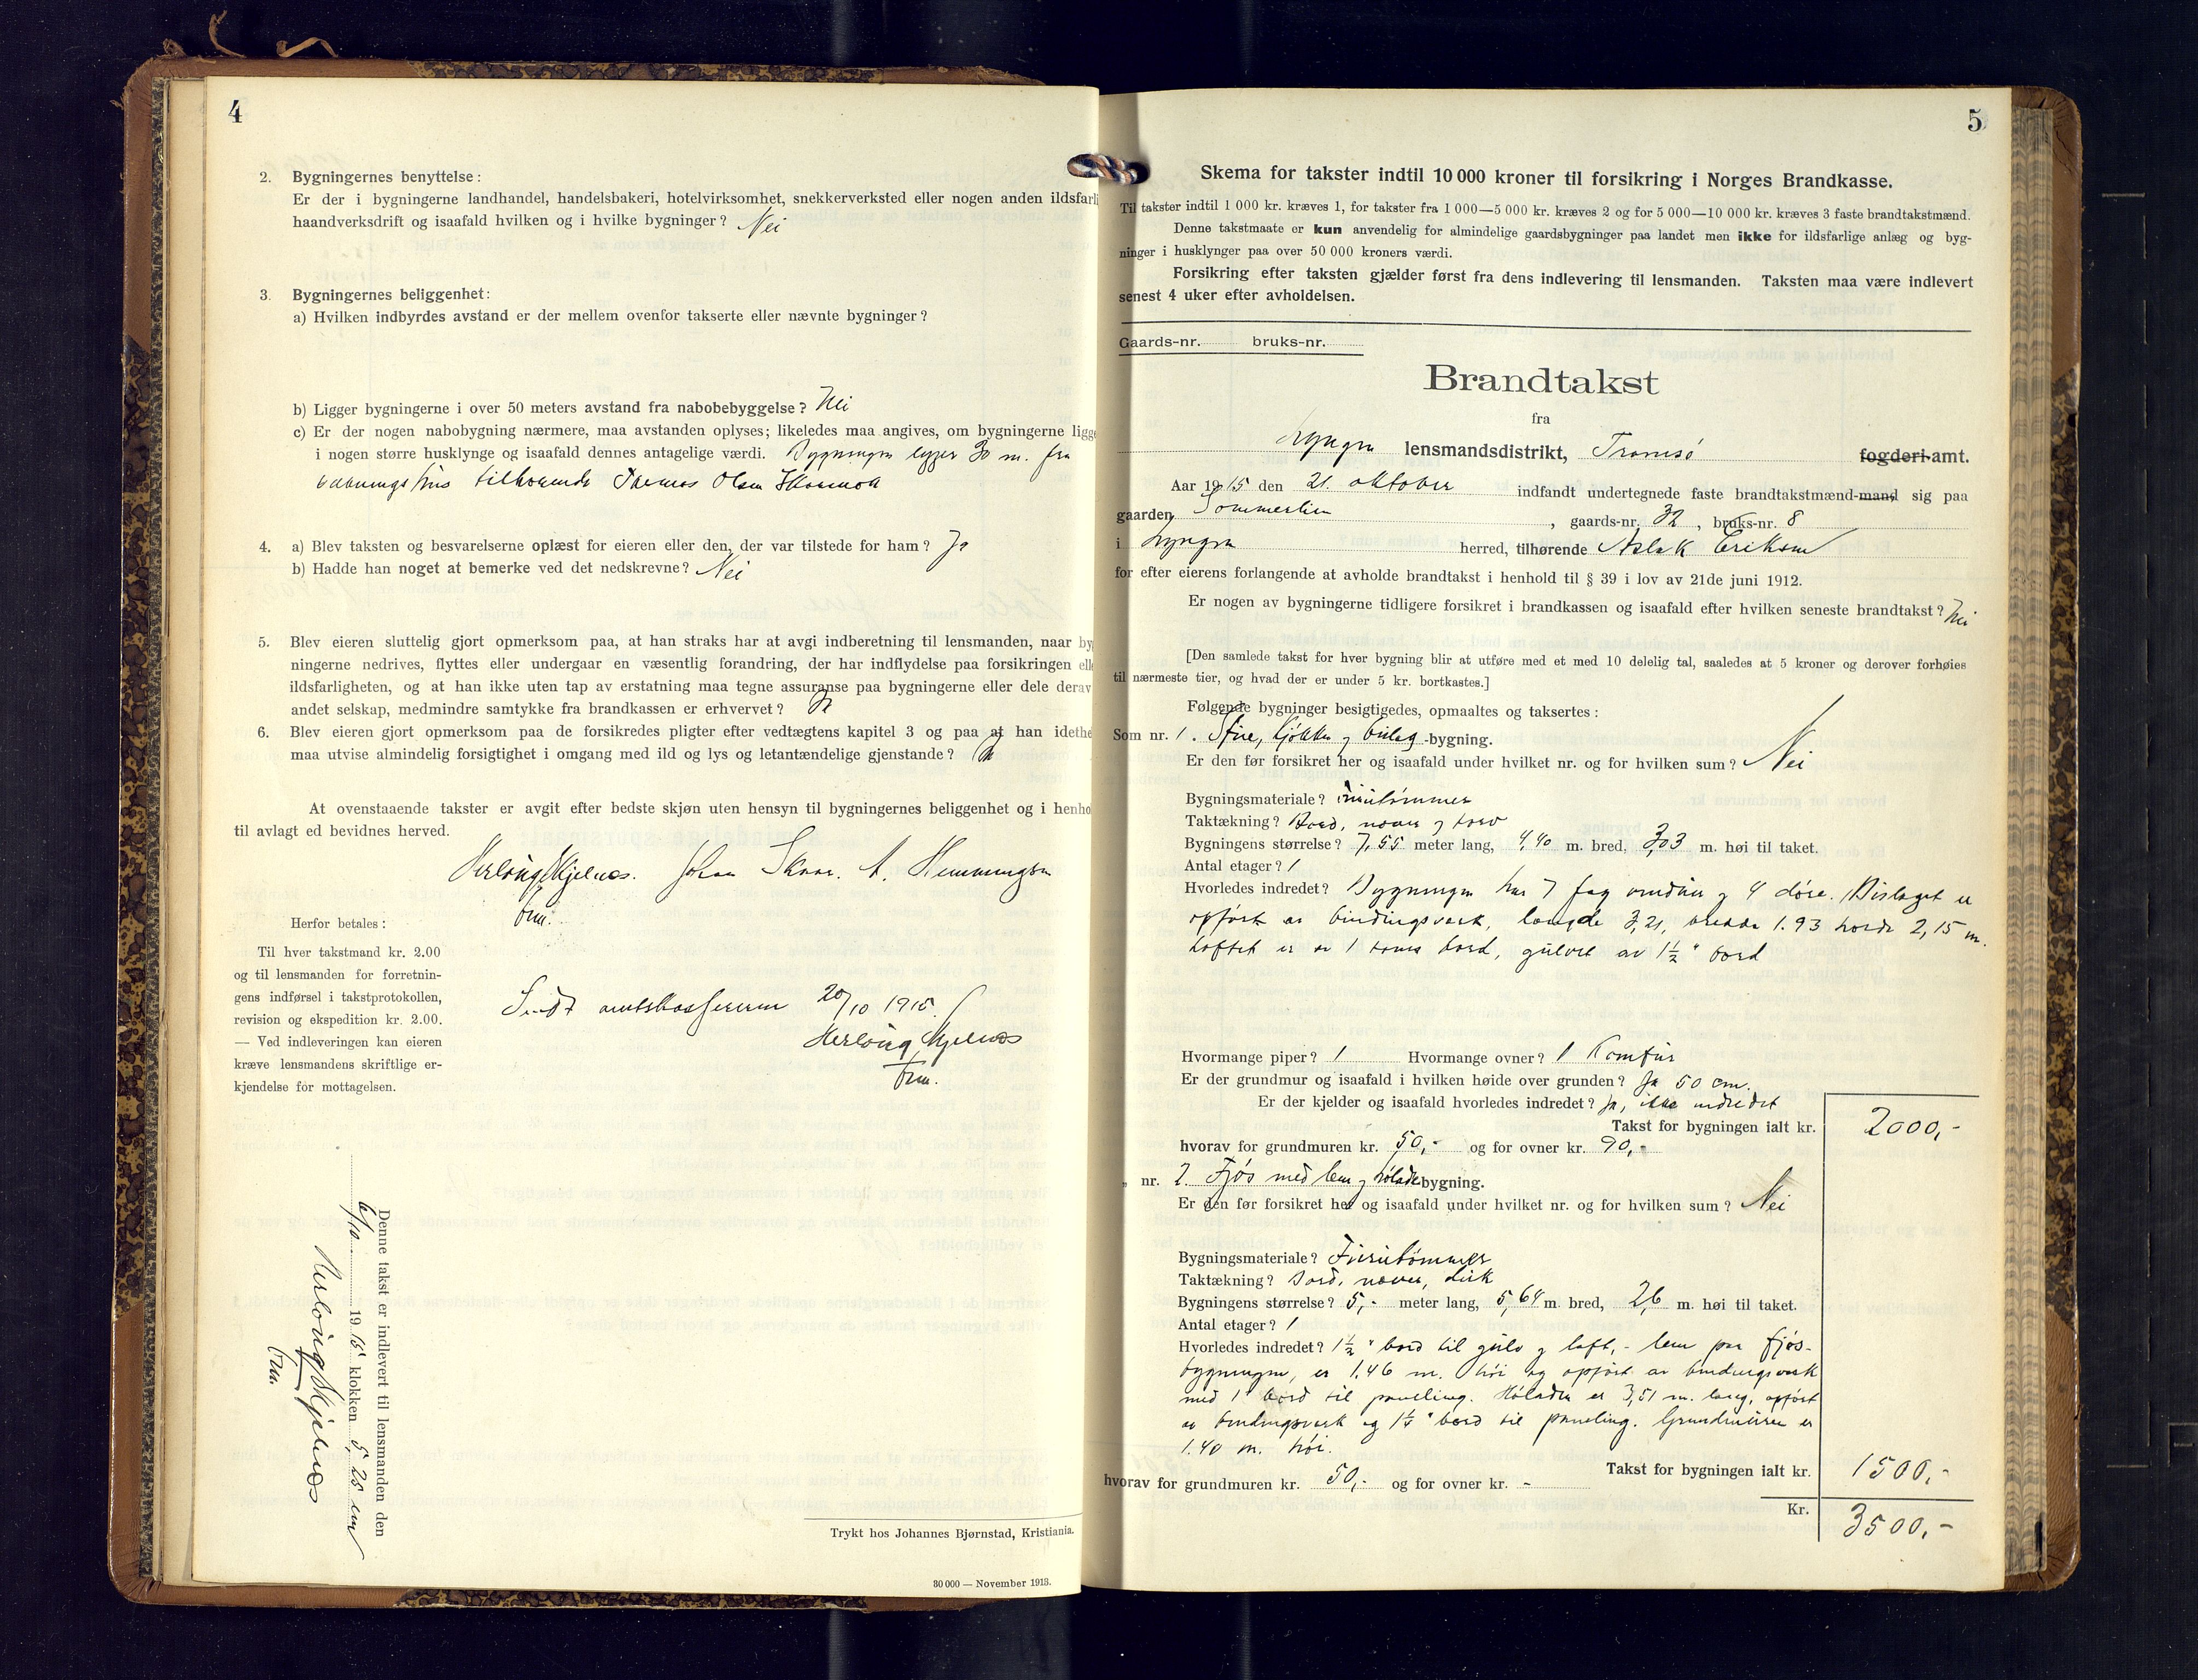 4
2. Bygningernes benyttelse:
Er der i bygningerne landhandel, handelsbakeri, hotelvirksomhet, snekkerverksted eller nogen anden ildsfarli
haandverksdrift og isaafald hvilken og i hvilke bygninger? Nei
3. Bygningernes beliggenhet:
a) Hvilken indbyrdes avstand er der mellem ovenfor takserte eller nævnte bygninger?
b) Ligger bygningerne i over 50 meters avstand fra nabobebyggelse? Nei
c) Er der nogen nabobygning nærmere, maa avstanden oplyses; likeledes maa angives, om bygningerne ligge
i nogen større husklynge og isaafald dennes antagelige værdi. Bygningen ligger 30 m. fra
vaaningshus tilhørende Olsen
4. a) Blev taksten og besvarelserne oplæst for eieren eller den, der var tilstede for ham? Ja
b) Hadde han noget at bemerke ved det nedskrevne? Nei
5. Blev eieren sluttelig gjort opmerksom paa, at han straks har at avgi indberetning til lensmanden, naar by
ningerne nedrives, flyttes eller undergaar en væsentlig forandring, der har indflydelse paa forsikringen elle
ildsfarligheten, og at han ikke uten tap av erstatning maa tegne assuranse paa bygningerne eller dele derav
andet selskap, medmindre samtykke fra brandkassen er erhvervet? Ja
6. Blev eieren gjort opmerksom paa de forsikredes pligter efter vedtægtens kapitel 3 og paa at han idethe
maa utvise almindelig forsigtighet i omgang med ild og lys og letantændelige gjenstande? Ja
At ovenstaaende takster er avgit efter bedste skjøn uten hensyn til bygningernes beliggenhet og i henho
til avlagt ed bevidnes herved.
Herlöug Kjelnes. Johan Skaar. A. Hemmingsen
Herfor betales:
Til hver takstmand kr. 2.00
og til lensmanden for forretnin-
gens indførsel i takstprotokollen,
revision og ekspedition kr. 2.00.
— Ved indleveringen kan eieren
kræve lensmandens skriftlige er-
kjendelse for mottagelsen.
Sendt amtskassereren 20/10 1915.
Herlöug Kjelnes
Denne takst er indlevert til lensmanden den
6/10 1915 klokken 5,25 em
Herlöug Kjelnes
Trykt hos Johannes Bjørnstad, Kristiania.
30 000 — November 1913.
5
Skema for takster indtil 10 000 kroner til forsikring i Norges Brandkasse.
Til takster indtil 1 000 kr. kræves 1, for takster fra 1 000—5 000 kr. kræves 2 og for 5 000—10 000 kr. kræves 3 faste brandtakstmænd.
Denne takstmaate er kun anvendelig for almindelige gaardsbygninger paa landet men ikke for ildsfarlige anlæg og byg-
ninger i husklynger paa over 50 000 kroners værdi.
Forsikring efter taksten gjælder først fra dens indlevering til lensmanden. Taksten maa være indlevert
senest 4 uker efter avholdelsen.
Gaards-nr. bruks-nr.
Brandtakst
fra
Lyngen lensmandsdistrikt, Tromsö fogderi-amt.
Aar 1915 den 21. oktober indfandt undertegnede faste brandtakstmænd-mand sig paa
gaarden Sommerlien, gaards-nr. 32, bruks-nr. 8
i Lyngen herred, tilhørende Aslak Eriksen
for efter eierens forlangende at avholde brandtakst i henhold til § 39 i lov av 21de juni 1912.
Er nogen av bygningerne tidligere forsikret i brandkassen og isaafald efter hvilken seneste brandtakst? Nei
[Den samlede takst for hver bygning blir at utføre med et med 10 delelig tal, saaledes at 5 kroner og derover forhøies
til nærmeste tier, og hvad der er under 5 kr. bortkastes.]
Følgende bygninger besigtigedes, opmaaltes og taksertes:
Som nr. 1. Stue, kjøkken og bislag -bygning.
Er den før forsikret her og isaafald under hvilket nr. og for hvilken sum? Nei
Bygningsmateriale? Furutömmer
Taktækning? Bord, næver og torv
Bygningens størrelse? 7,55 meter lang, 4,40 m. bred, 3,03 m. høi til taket.
Antal etager? 1
Hvorledes indredet? Bygningen har 7 fag vinduer og 4 døre. Bislaget er
opført av bindingsverk, længde 3,21, bredde 1.93 høide 2,15 m.
Loftet er av 1 toms bord, gulvet av 1½" bord
Hvormange piper? 1 Hvormange ovner? 1 Komfur
Er der grundmur og isaafald i hvilken høide over grunden? Ja 50 cm.
Er der kjelder og isaafald hvorledes indredet? Ja, ikke indredet
Takst for bygningen ialt kr. 2000,-
hvorav for grundmuren kr. 50,- og for ovner kr. 90,-
„ nr. 2. Fjøs med lem og hölade bygning.
Er den før forsikret her og isaafald under hvilket nr. og for hvilken sum? Nei
Bygningsmateriale? Furutömmer
Taktækning? Bord, næver,
Bygningens størrelse? 5,- meter lang, 5,64 m. bred, 2,6 m. høi til taket.
Antal etager? 1
Hvorledes indredet? 1½" bord til gulv og loft, - lem paa fjøs-
bygningen, er 1,46 m. høi og opført av bindingsverk
med 1" bord til paneling. Höladen er 3,51 m. lang, opført
av bindingsverk og bord til paneling. Grundmuren er
1.40 m. høi.
Takst for bygningen ialt kr. 1500,-
hvorav for grundmuren kr. 50,- og for ovner kr. -
Kr. 3500,-